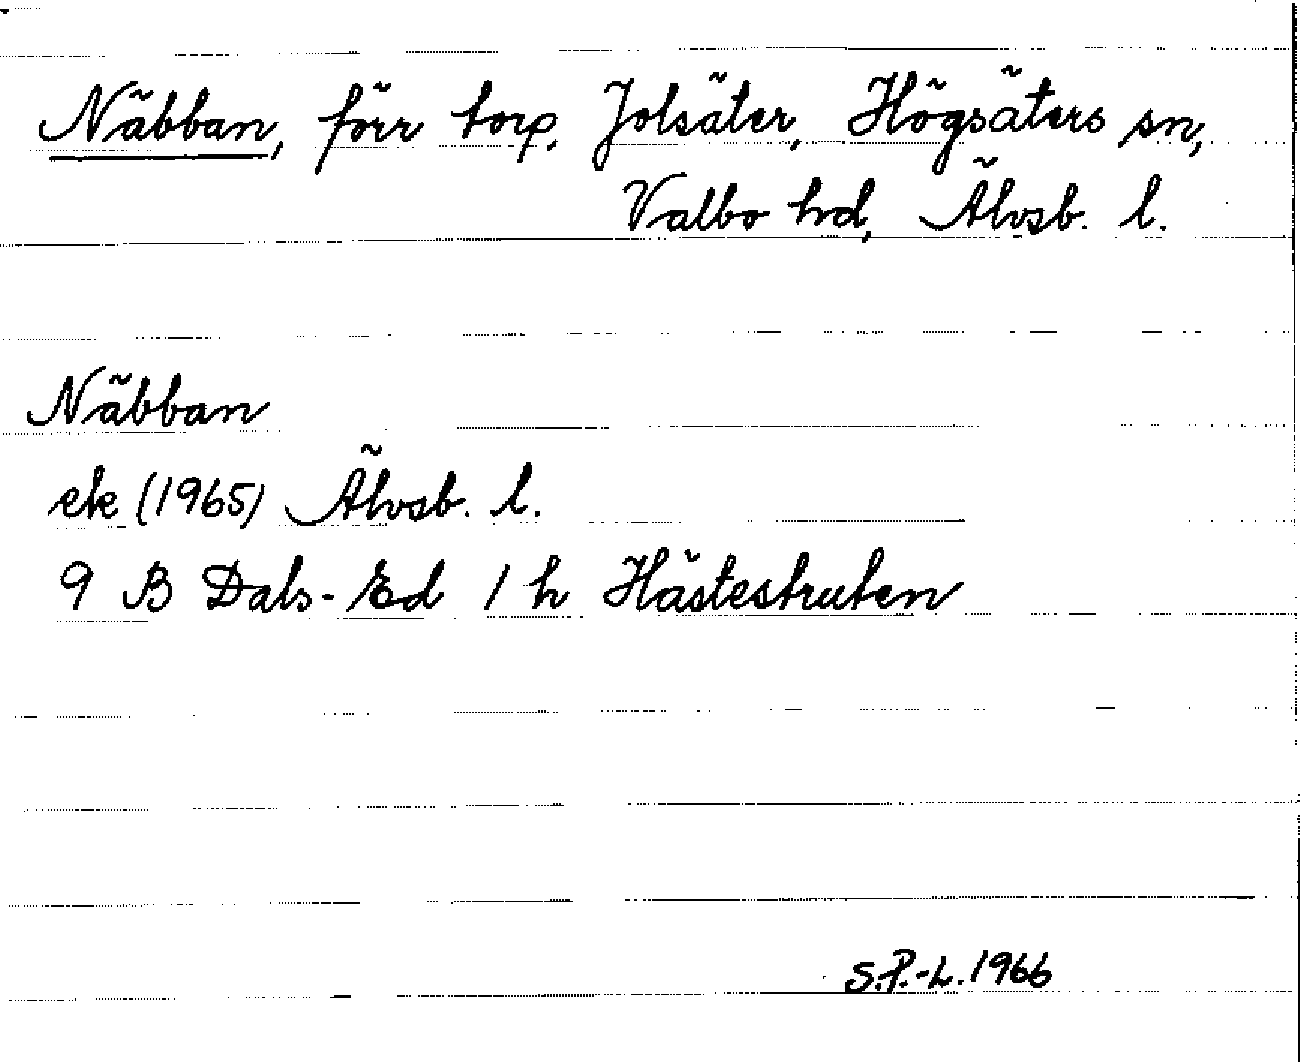 Näbban, förr torp, Jolsäter, Högsäters sn,
Valbo hd, Älvsb. l.
Näbban
ek (1965) Älvsb. l.
9 B Dals-Ed 1 h Hästestruten
S.P.-L. 1966